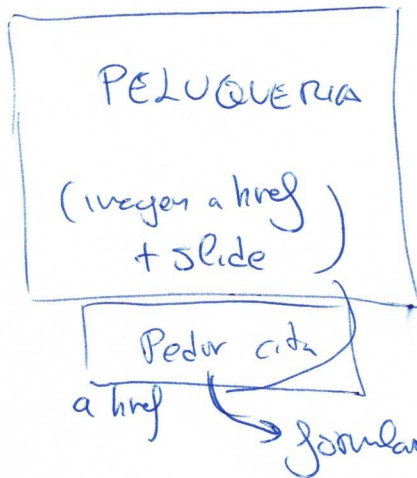 PELUQUERIA
(imagen a href
+ slide)
Pedir cita
a href
formular